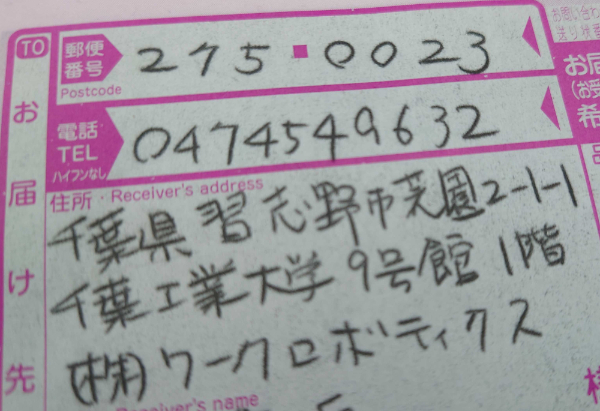 TO
お届け先
郵便番号
Postcode
275-0023
電話
TEL
ハイフンなし
0474549632
住所・Receiver's address
千葉県習志野市芝園2-1-1
千葉工業大学9号館1階
(株)ワークロボティクス
Receiver's name
お届
(お受
希